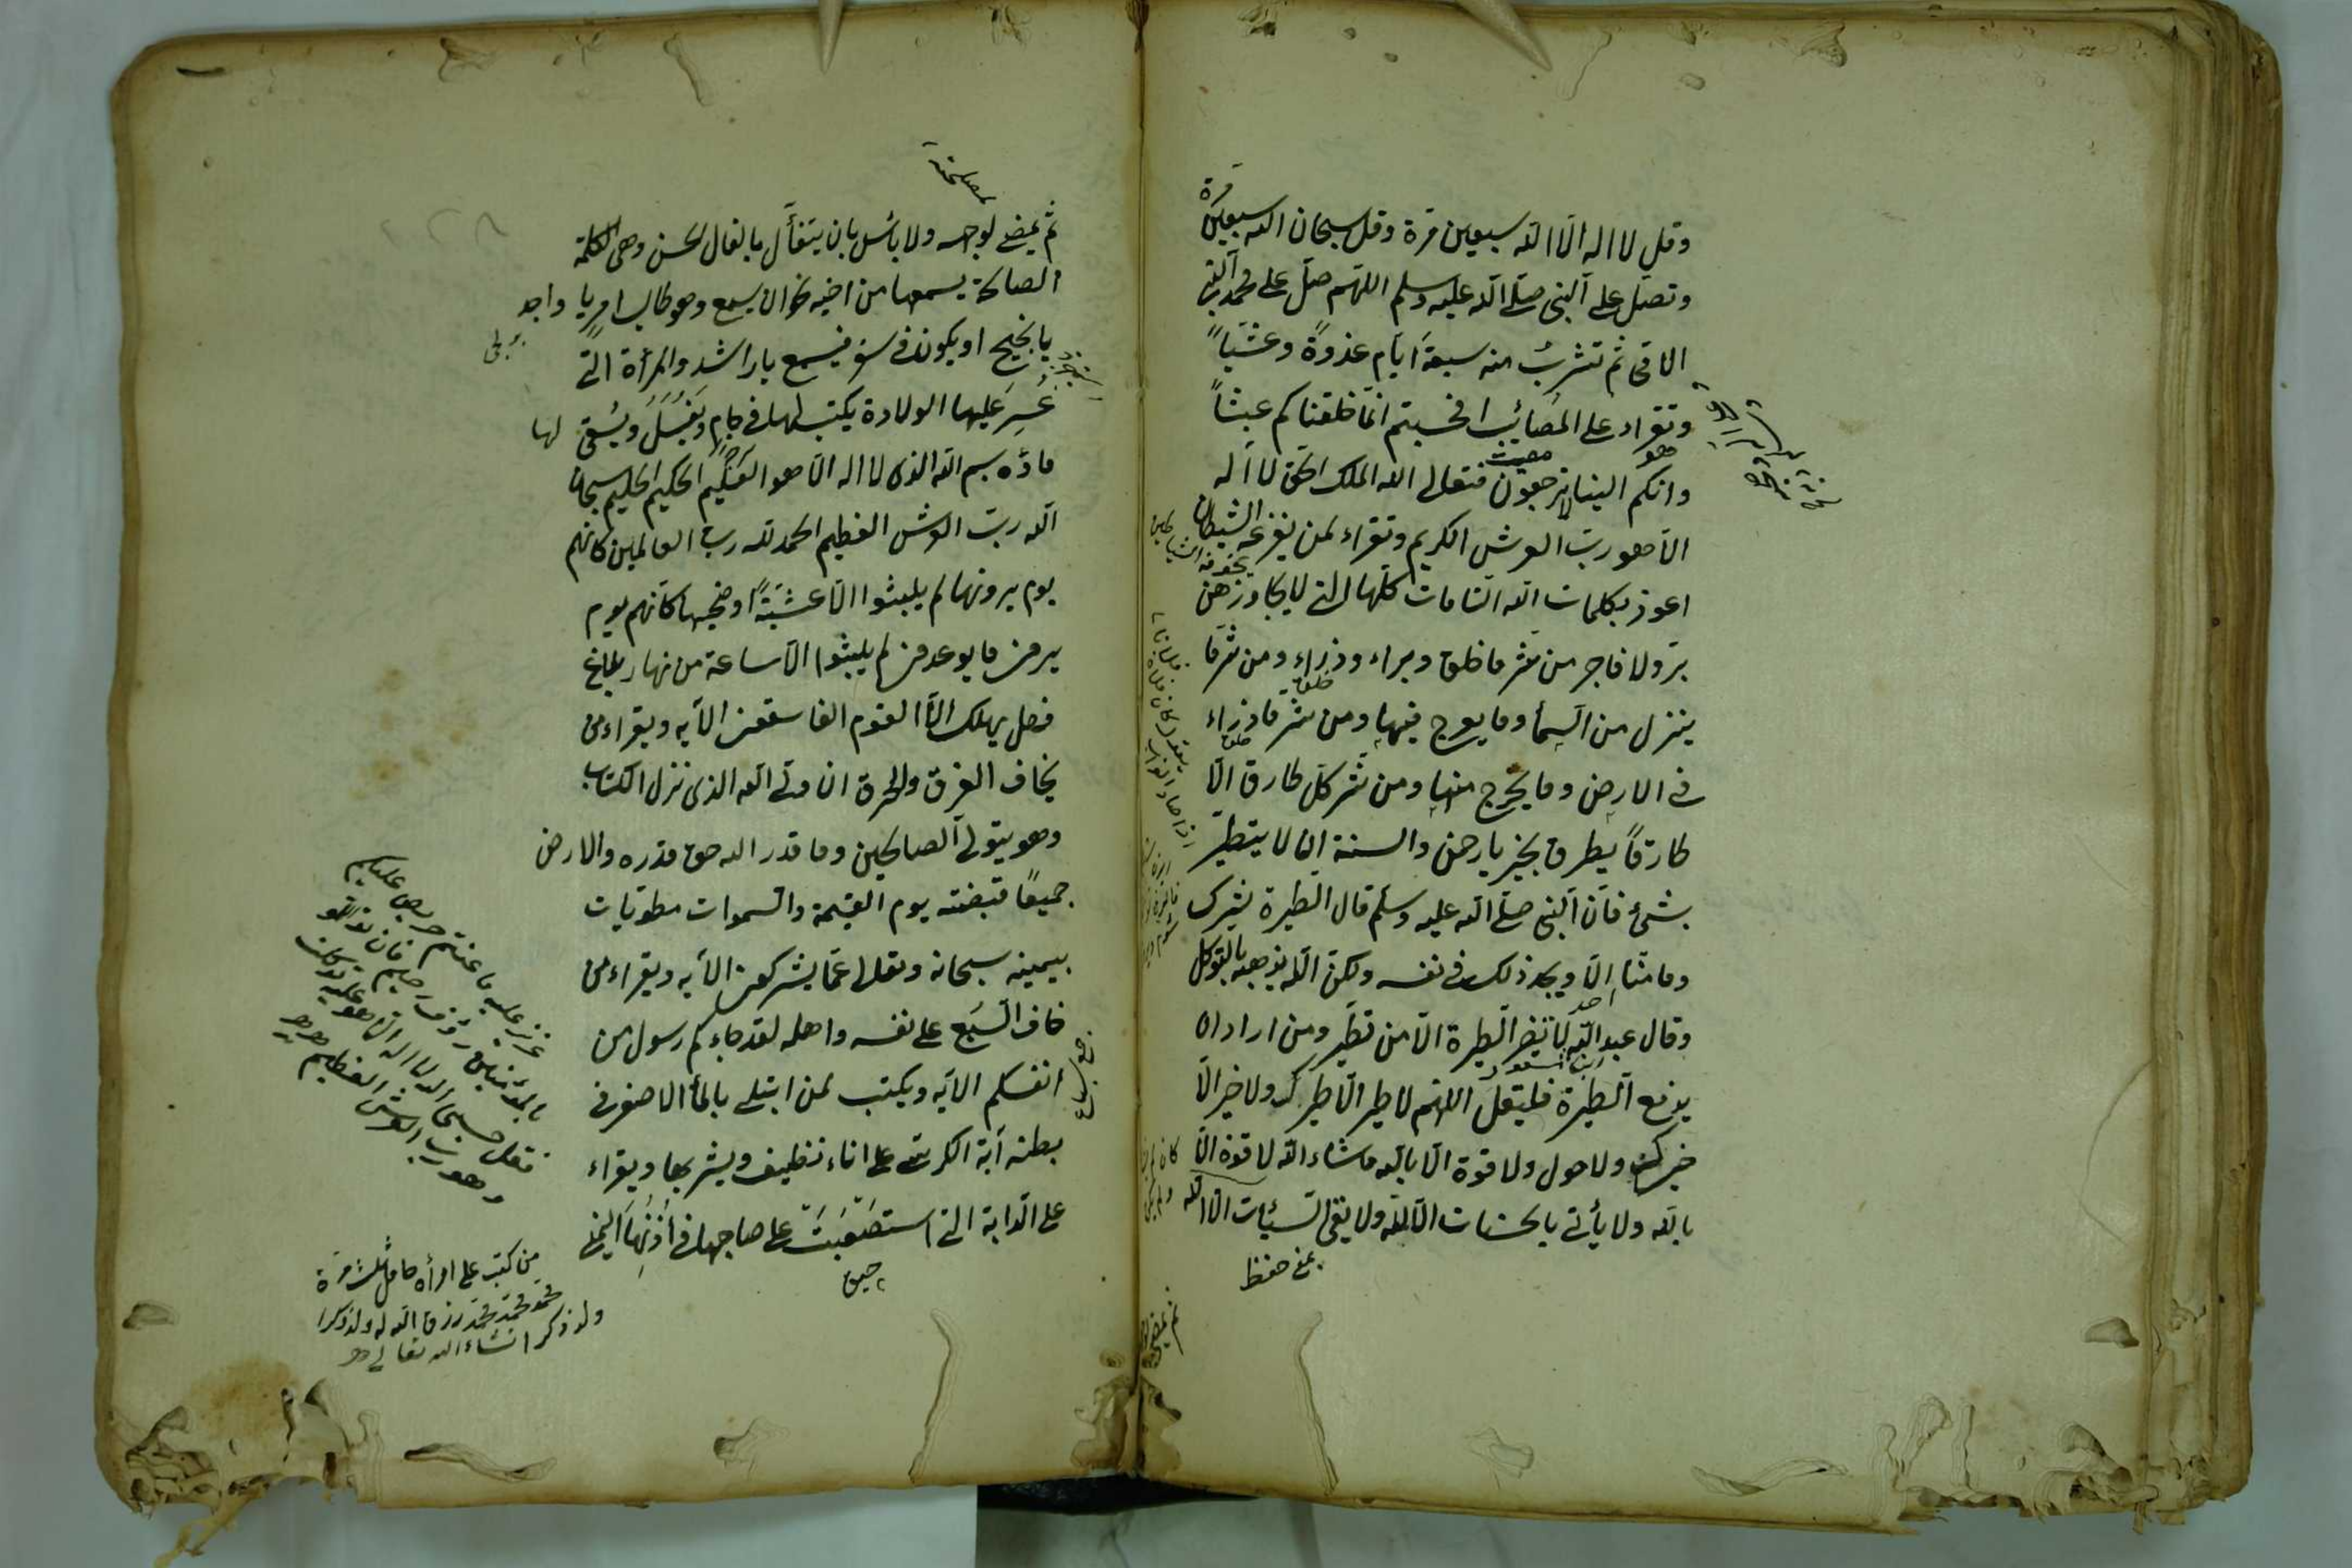 وقل لا اله الا الله سبعين مرة وقل سبحان الله سبعين
مرة
وتصل على النبى صلى الله عليه وسلم اللهم صل على محمد النبى
الامى ثم تشرب منه سبعة ايام غدوة وعشياً
وتقراء على المصائب افحسبتم انما خلقناكم عبثاً
وانكم الينا لا ترجعون فتعالى الله الملك الحق لا اله
هو
الا هو رب العرش الكريم وتقراء لمن يفزعه الشيطان
اعوذ بكلمات الله التامات كلها التى لا يجاوزهن
بر ولا فاجر من شر ما خلق وبراء وذراء ومن شر ما
خلق
ينزل من السما وما يعرج فيها ومن شر ما ذراء
خلق
فى الارض وما يخرج منها ومن شر كل طارق الا
طارقاً يطرق بخير يا رحمن والسنة ان لا يتطير
بشئ فان النبى صلى الله عليه وسلم قال الطيرة شرك
وما منا الا ويجد ذلك فى نفسه ولكن الله يذهبه بالتوكل
احد
وقال عبد الله لا تضر الطيرة الا من تطير ومن اراد ان
ابن مسعود
يدفع الطيرة فليقل اللهم لا طير الا طيرك ولا خير الا
خيرك ولا حول ولا قوة الا بالله ما شاء الله لا قوة الا
بالله ولا يأتى بالحسنات الا الله ولا يقى السيئات الا الله
ثم يمضى
ثم يمضى لوجهه ولا بأس بان يتفأل بالفال الحسن وهى الكلمة
الصالحة يسمعها من اخيه نحو ان يسمع وهو طالب امر يا واجد
يا نجيح او يكون فى سفر فيسمع يا راشد والمرأة التى
عسر عليها الولادة يكتب لها فى جام ويغسل ويسقى لها
ماؤه بسم الله الذى لا اله الا هو العظيم الحكيم الحليم سبحان
الله رب العرش العظيم الحمد لله رب العالمين كانهم
يوم يرونها لم يلبثوا الا عشية او ضحيها كانهم يوم
يرون ما يوعدون لم يلبثوا الا ساعة من نهار بلاغ
فهل يهلك الا القوم الفاسقون الآيه ويقراء من
يخاف الغرق والحرق ان ولى الله الذى نزل الكتاب
وهو يتولى الصالحين وما قدر الله حق قدره والارض
جميعاً قبضته يوم القيمة والسموات مطويات
بيمينه سبحانه وتعالى عما يشركون الآيه ويقراء من
خاف السبع على نفسه واهله لقد جاءكم رسول من
انفسكم الايه ويكتب لمن ابتلى بالمأ الاصفر فى
بطنه آية الكرسى على اناء نظيف ويشربها ويقراء
على الدابة التى استصعبت على صاحبها فى اذنها اليمنى
عزيز عليه ما عنتم حريص عليكم
بالمؤمنين رؤف رحيم فان تولوا
فقل حسبى الله لا اله الا هو عليه توكلت
وهو رب العرش العظيم
من كتب على امرأة حامل ثلث مرة
محمد محمد محمد رزق الله له ولد ذكرا
ولد ذكر انشاء الله تعالى